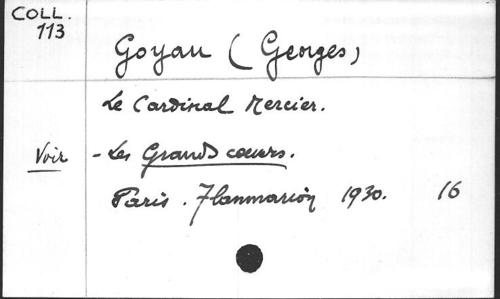 COLL.
113
Goyau (Georges)
Le Cardinal Mercier.
Voir - Les Grands cœurs.
Paris. Flammarion 1930. 16